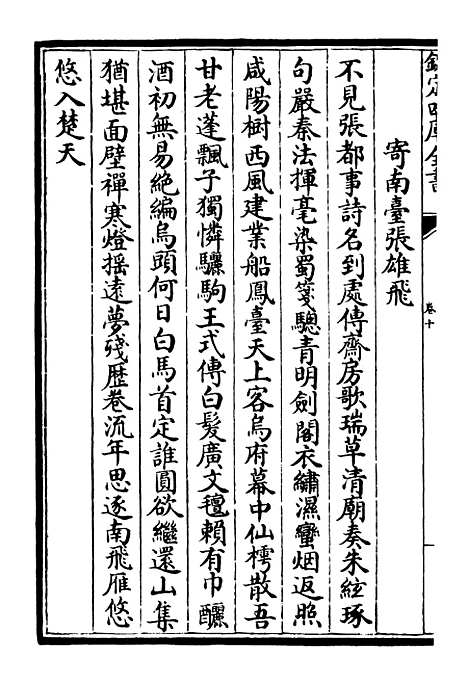 欽定四庫全書
卷十
寄南臺張雄飛
不見張都事詩名到處傳齋房歌瑞草清廟奏朱絃琢
句嚴秦法揮毫染蜀箋驄青明劍閣衣繡濕蠻烟返照
咸陽樹西風建業船鳳臺天上客烏府幕中仙樗散吾
甘老蓬飄子獨憐驪駒王式傳白髮廣文氊賴有巾釃
酒初無易絶編烏頭何日白馬首定誰圓欲繼還山集
猶堪面壁禪寒燈摇遠夢殘歴卷流年思逐南飛雁悠
悠入楚天